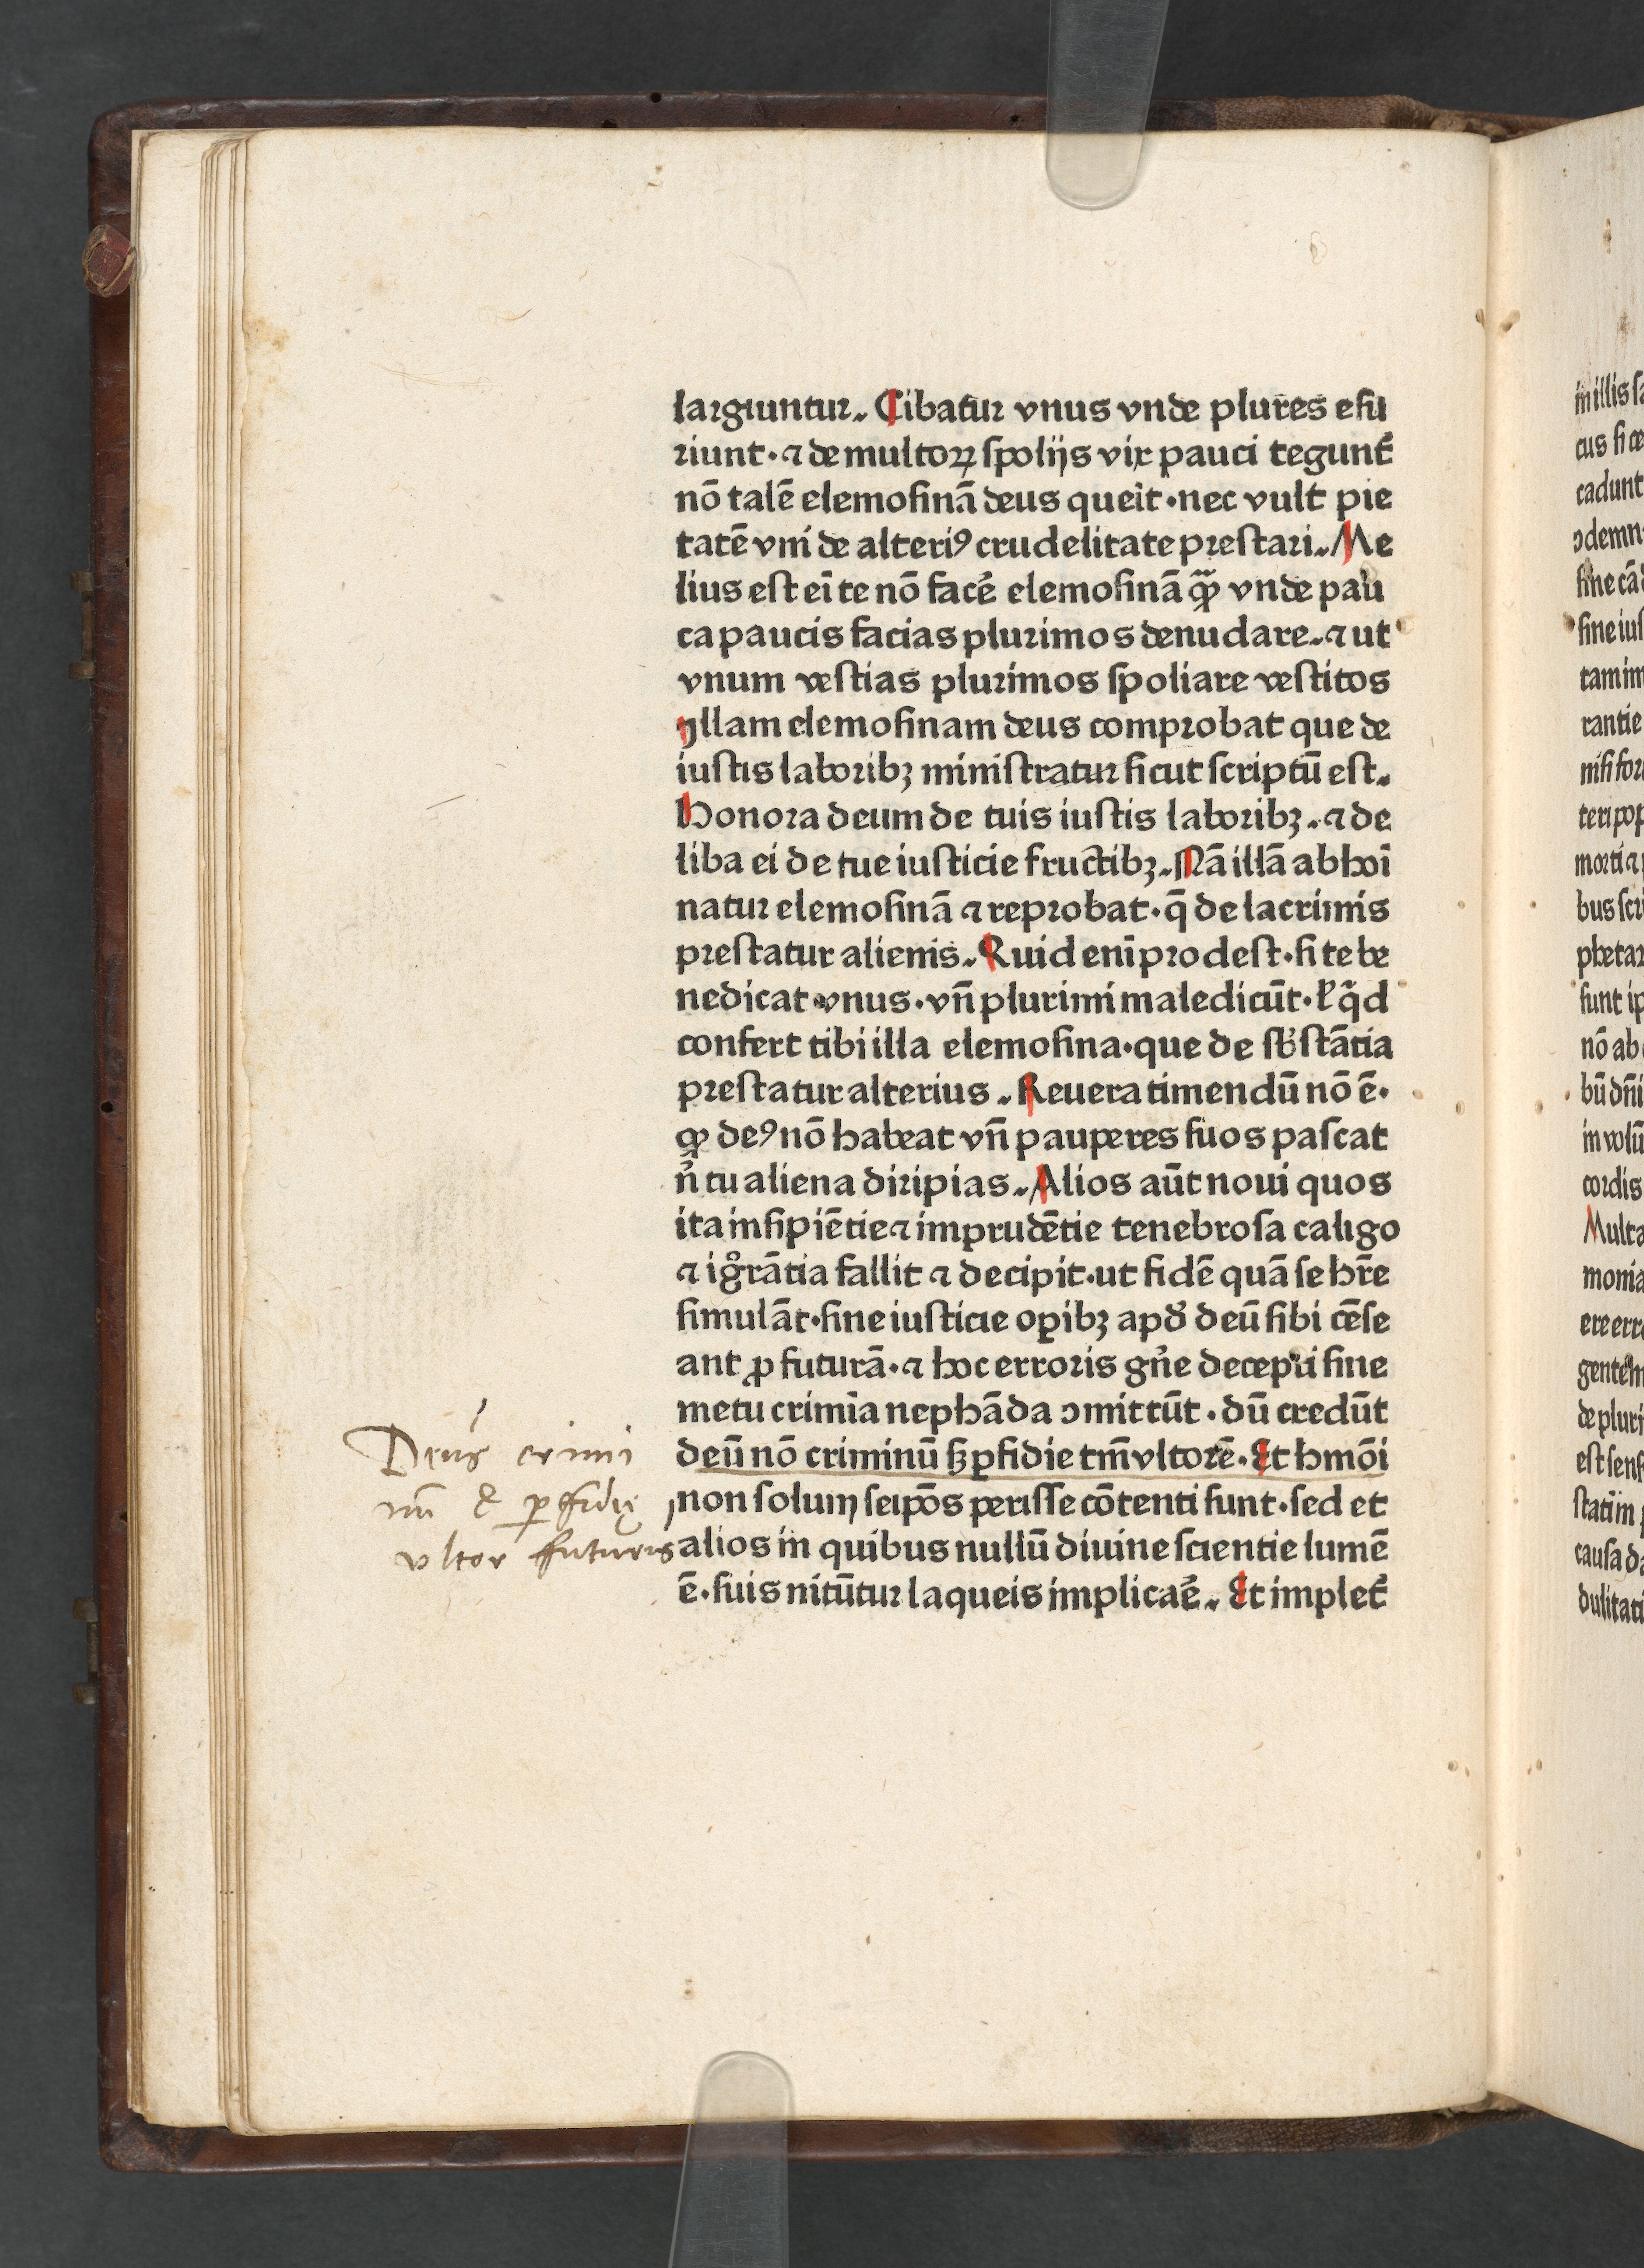 largiuntur. Cibatur vnus vnde plures esu
riunt· ⁊ de multoꝝ spolijs vix pauci tegunt᷑
nō talē elemosinā deus querit· nec vult pie
tatē vni de alteriꝰ crudelitate prestari. Me
lius est em̄ te nō facē elemosinā qꝫ̄ vnde pau
ca paucis facias plurimos denudare. ⁊ ut
vnum vestias plurimos spoliare vestitos
Illam elemosinam deus comprobat que de
iustis laboribꝫ ministratur sicut scriptū est.
Honora deum de tuis iustis laboribꝫ. ⁊ de
liba ei de tue iusticie fructibꝫ. Nā illā abhoī
natur elemosinā ⁊ reprobat· q̄ de lacrimis
prestatur alienis. Quid enī prodest· si te be
nedicat vnus· vn̄ plurimi maledicūt· ł qͥd
confert tibi illa elemosina· que de sb̓stātia
prestatur alterius. Reuera timendū nō ē·
qꝫ deꝰ nō habeat vn̄ pauperes suos pascat
n̓ tu aliena diripias. Alios aūt noui quos
ita insipiētie ⁊ imprudētie tenebrosa caligo
⁊ ig̊rātia fallit ⁊ decipit· ut fidē quā se hr̄e
simulāt· sine iusticie oꝑibꝫ apd̓ deū sibi cēse
ant ꝓfuturā· ⁊ hoc erroris gn̓e decepti sine
metu crimīa nephāda ꝯmittūt· dū credūt
deū nō criminū sꝫ ꝑfidie tm̄ vltorē· Et hmōi
non solum seipōs perisse cōtenti sunt· sed et
alios in quibus nullū diuine scientie lumē
ē· suis nitūtur laqueis implicaē. Et implet᷑
Deus crimi
nū & ꝑfidię
vltor futurus
in illis sa
cus si ce
cadunt
ꝯdemn
sine cād
sine ius
tam im
rantie
nisi for
teri pop
morti ⁊
bus scri
phetar
sunt ip
nō ab
bū dn̄i
in volū
cordis
Multa
monia
ere erro
gentem
de pluri
est sens
statim
causa da
dulitati